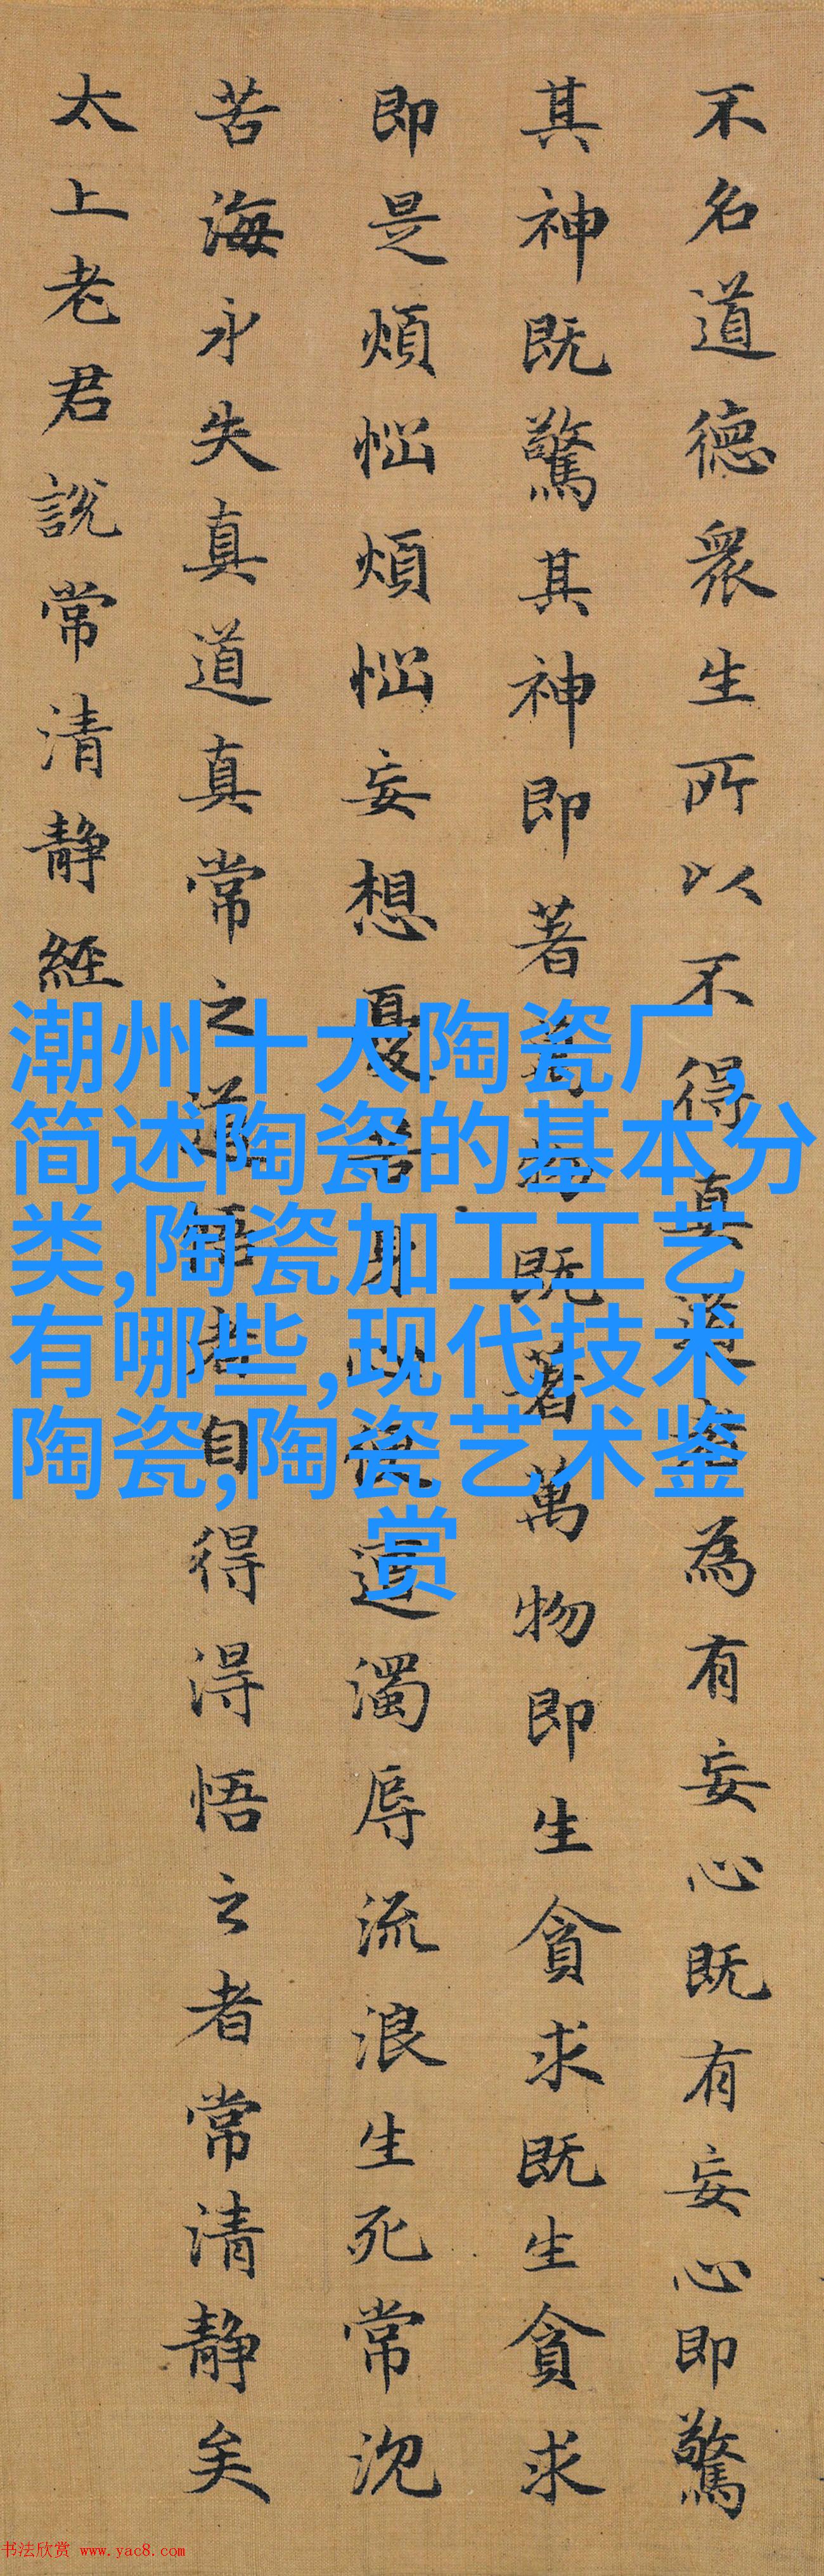 不名道德衆生所以不得真道者為有妄心既有妄心即驚
其神既驚其神即著萬物既著萬物即生貪求既生貪求
即是煩惱煩惱妄想憂苦身心便遭濁辱流浪生死常沉
苦海永失真道真常之道悟者自得得悟之者常清静矣
太上老君說常清静經
潮州十大陶瓷厂,
简述陶瓷的基本分
类,陶瓷加工工艺
有哪些,现代技术
陶瓷,陶瓷艺术鉴
赏
书法欣赏 www.yac8.com